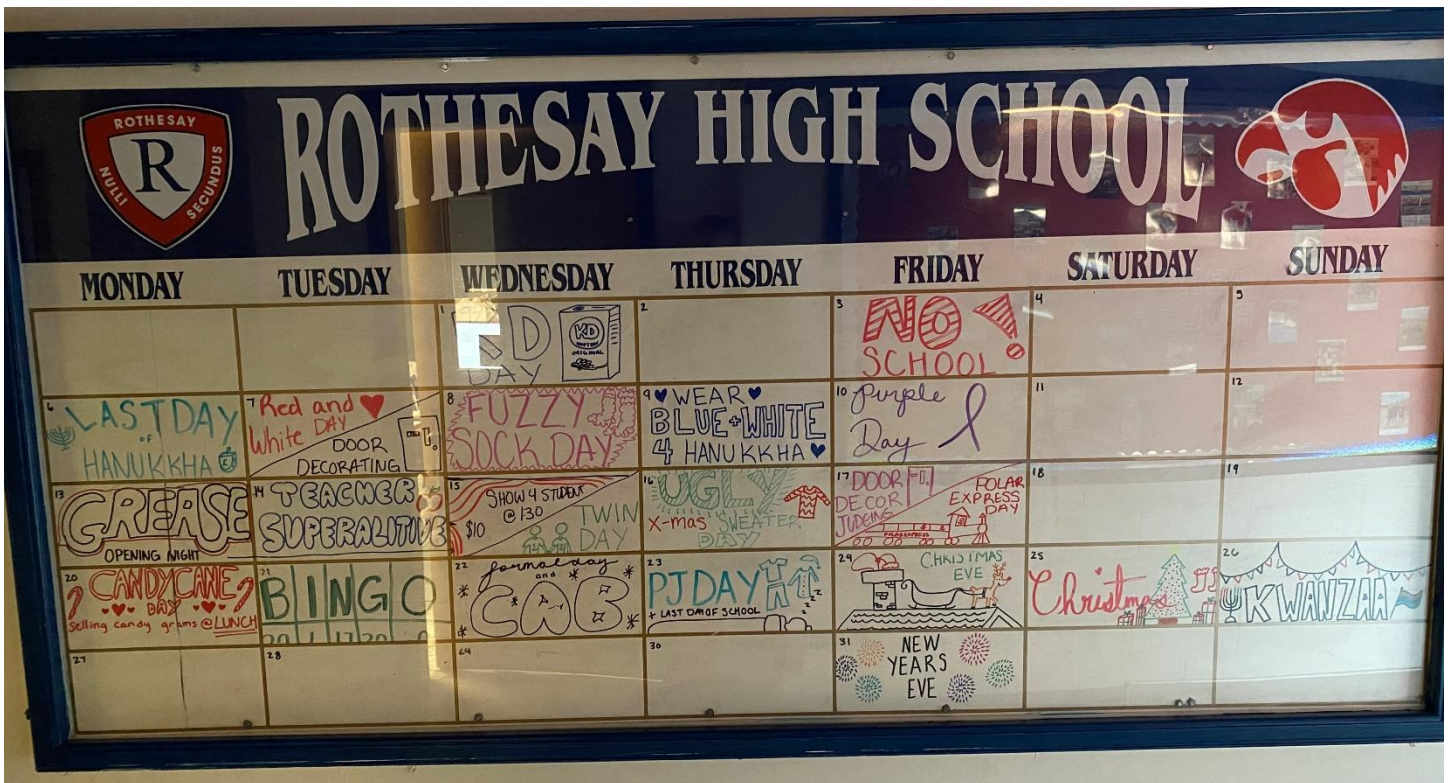 ROTHESAY
R
NULLI
SECUNDUS
ROTHESAY HIGH SCHOOL
MONDAY
TUESDAY
WEDNESDAY
THURSDAY
FRIDAY
SATURDAY
SUNDAY
1
KD
DAY
KD
ORIGINAL
2
3
NO !
SCHOOL
4
5
6
LAST DAY
OF
HANUKKHA
7
Red and
White DAY
DOOR
DECORATING
8
FUZZY
SOCK DAY
9
WEAR
BLUE + WHITE
4 HANUKKHA
10
Purple
Day
11
12
13
GREASE
OPENING NIGHT
14
TEACHER
SUPERALITIVE
15
SHOW 4 STUDENT
@ 130
$10
TWIN
DAY
16
UGLY
X-mas SWEATER
DAY
17
DOOR
DECOR
JUDEING
POLAR
EXPRESS
DAY
POLAR EXPRESS
18
19
20
CANDYCANE
DAY
Selling candy grams @ LUNCH
21
BINGO
22
formal day
and
CAB
23
PJ DAY
+ LAST DAY OF SCHOOL
24
CHRISTMAS
EVE
25
Christmas
26
KWANZAA
27
28
29
30
31
NEW
YEARS
EVE